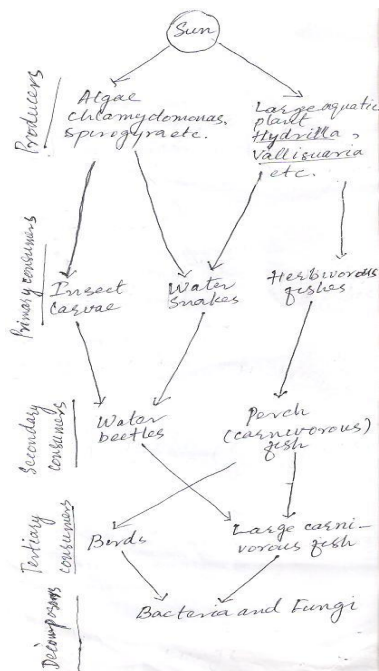 Sun
Producers
Algae
Chlamydomonas,
Spirogyra etc.
Large aquatic
plant
Hydrilla,
Vallisuaria
etc.
Primary consumers
Insect
Carvae
Water
Snakes
Herbivorous
fishes
Secondary
consumers
Water
beetles
Perch
(carnivorous)
fish
Tertiary
consumers
Birds
Large carni-
vorous fish
Decomposers
Bacteria and Fungi